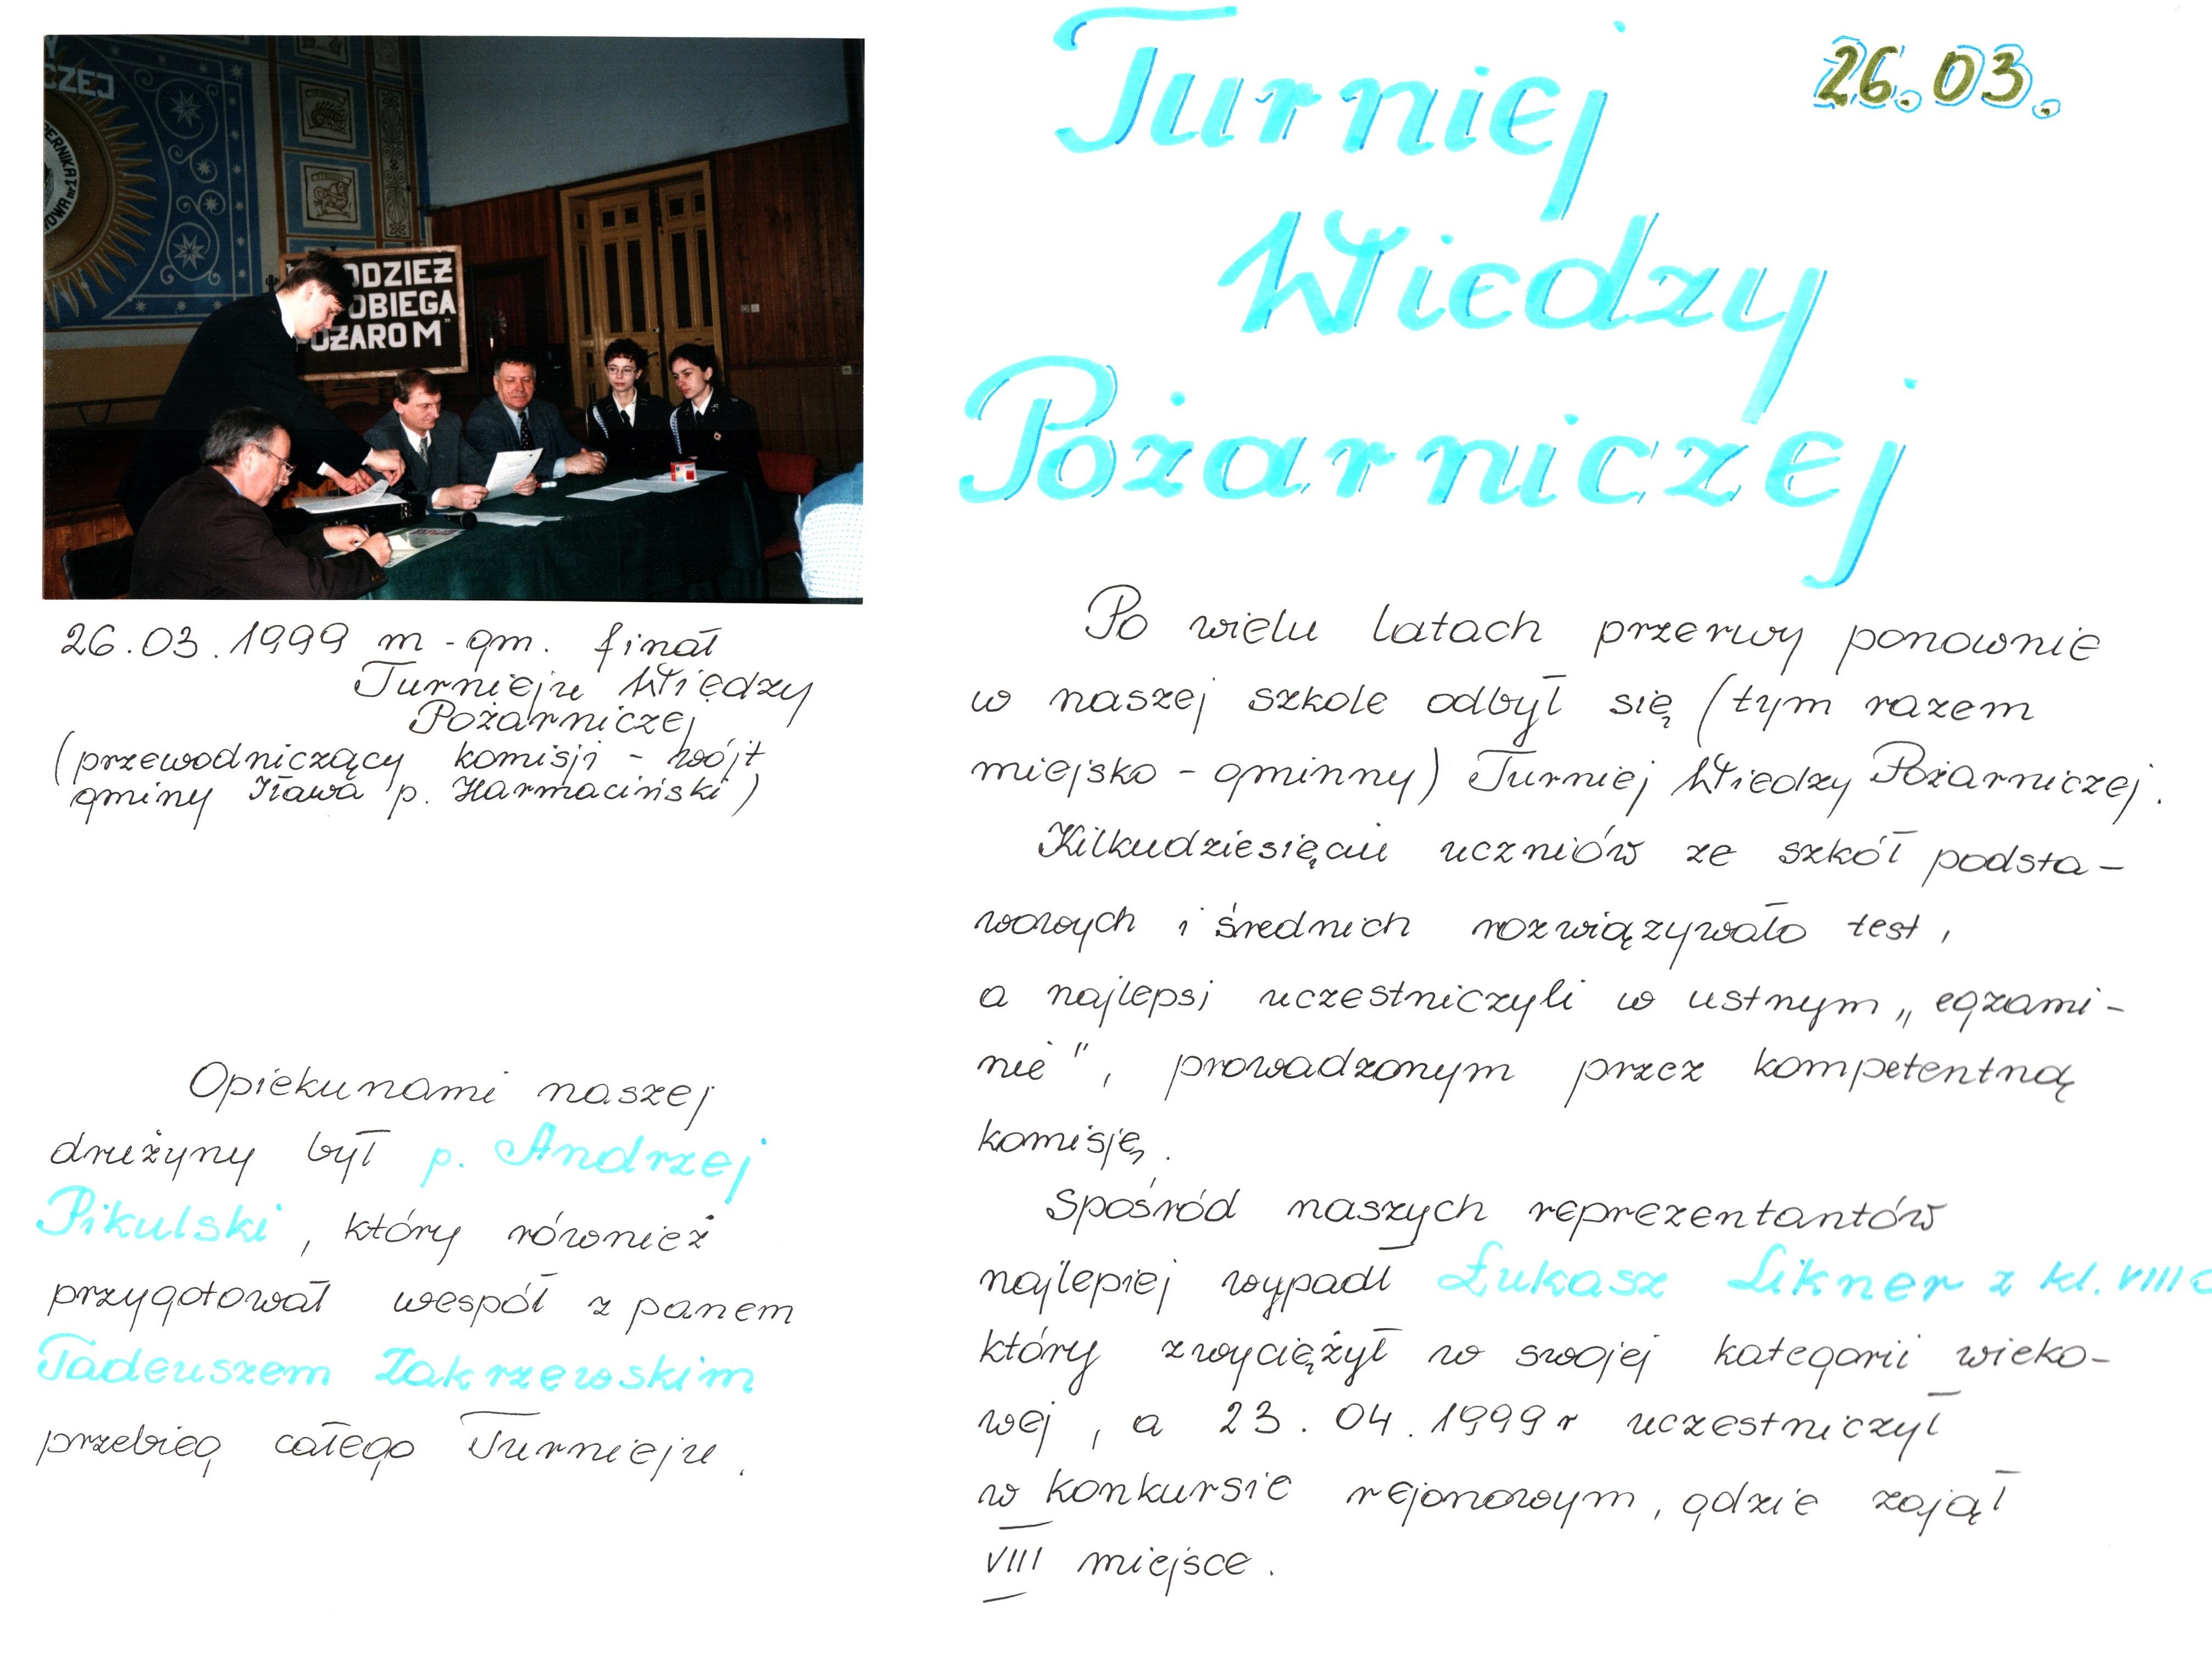 CZEJ
ODZIEŻ
OBIEGA
OŻAROM"
26.03.1999 m-gm. finał
Turnieju Wiedzy
Pożarniczej
(przewodniczący komisji - wójt
gminy Iława p. Harmaciński)
Opiekunami naszej
drużyny był p. Andrzej
Pikulski, który również
przygotował wespół z panem
Tadeuszem Zakrzewskim
przebieg całego Turnieju.
Turniej
26.03.
Wiedzy
Pożarniczej
Po wielu latach przerwy ponownie
w naszej szkole odbył się (tym razem
miejsko-gminny) Turniej Wiedzy Pożarniczej.
Kilkudziesięciu uczniów ze szkół podsta-
wowych i średnich rozwiązywało test,
a najlepsi uczestniczyli w ustnym „egzami-
nie", prowadzonym przez kompetentną
komisję.
Spośród naszych reprezentantów
najlepiej wypadł Łukasz Likner z kl. VIII
który zwyciężył w swojej kategorii wieko-
wej, a 23.04.1999r uczestniczył
w konkursie rejonowym, gdzie zajął
VIII miejsce.